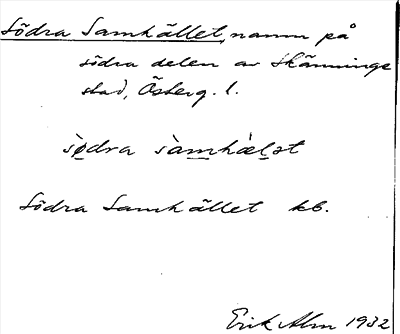 Södra Samhället, namn på
södra delen av Skännings
stad, Österg. l.
sø̀dra sàmhæ̀lət
Södra Samhället kb.
Erik Alm 1932